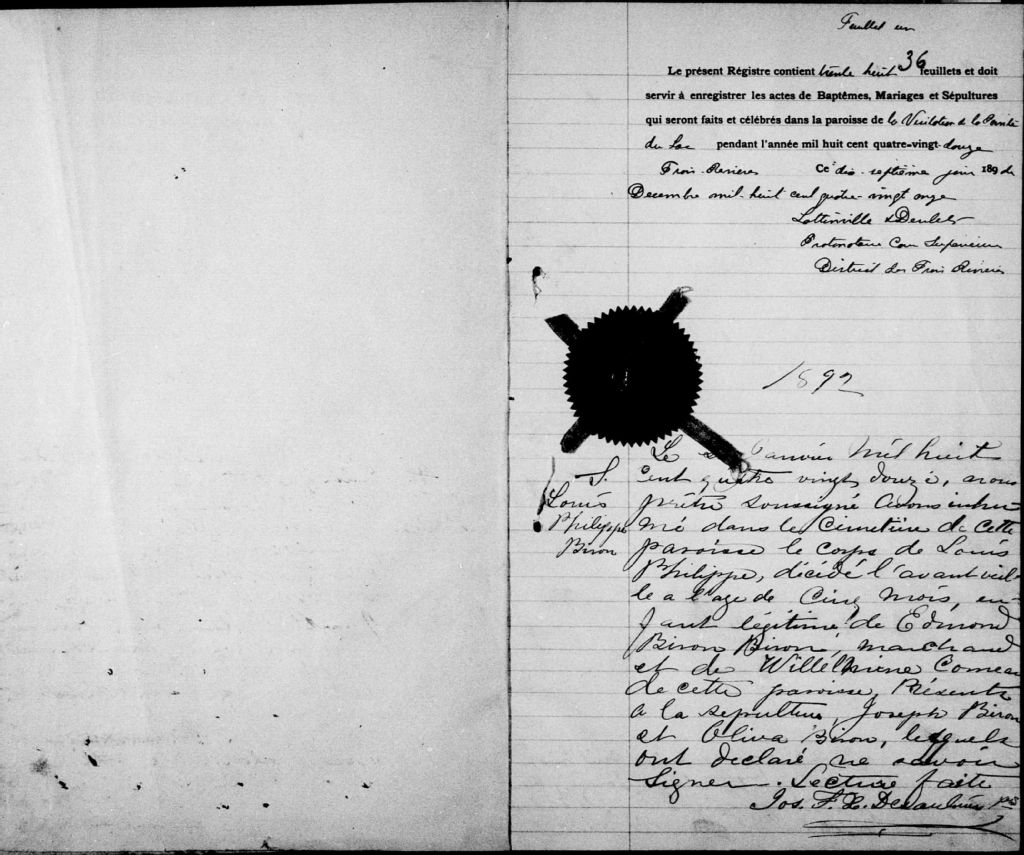 Feuillet un
Le présent Régistre contient trente huit 36 feuillets et doit
servir à enregistrer les actes de Baptêmes, Mariages et Sépultures
qui seront faits et célébrés dans la paroisse de la Visitation de la Pointe
du Lac pendant l'année mil huit cent quatre-vingt-douze
Trois-Rivières Ce dix-septième jour 189 de
Decembre mil-huit cent quatre-vingt onze
Lottinville &
Protonotaire Cour Superieure
District des Trois Rivieres
1892
S.
Louis
Philippe
Biron
Le Janvier Mil huit
cent quatre vingt douze, nous
prêtre soussigné avons inhu
mé dans le Cimetière de Cette
paroisse le corps de Louis
Philippe, décédé l'avant veil
le a l'age de Cinq Mois, en-
fant légitime de Edmond
Biron Biron, marchand
et de Willelmine Comeau
de cette paroisse, Présents
a la sepulture, Joseph Biron
et Oliva Biron, lesquels
ont declaré ne savoir
signer. Lecture faite
Jos. F. X. Desaulniers Ptre